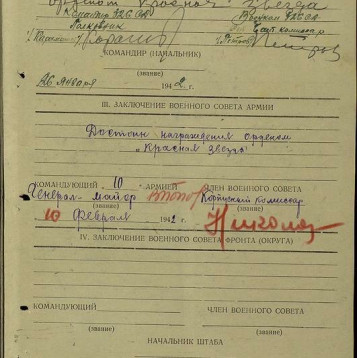 орденом Красная Звезда
Командир 426 ОСБ Военком 426 ОСБ
Полковник Бат. комиссар
КОМАНДИР (НАЧАЛЬНИК)
(звание)
26 января 1942 г.
III. ЗАКЛЮЧЕНИЕ ВОЕННОГО СОВЕТА АРМИИ
Достоин награждения орденом
"Красная звезда"
КОМАНДУЮЩИЙ 10 АРМИЕЙ ЧЛЕН ВОЕННОГО СОВЕТА
Генерал-майор Корпусной Комиссар
(звание) (звание)
10 Февраля 1942 г.
IV. ЗАКЛЮЧЕНИЕ ВОЕННОГО СОВЕТА ФРОНТА (ОКРУГА)
КОМАНДУЮЩИЙ ЧЛЕН ВОЕННОГО СОВЕТА
(звание) (звание)
НАЧАЛЬНИК ШТАБА